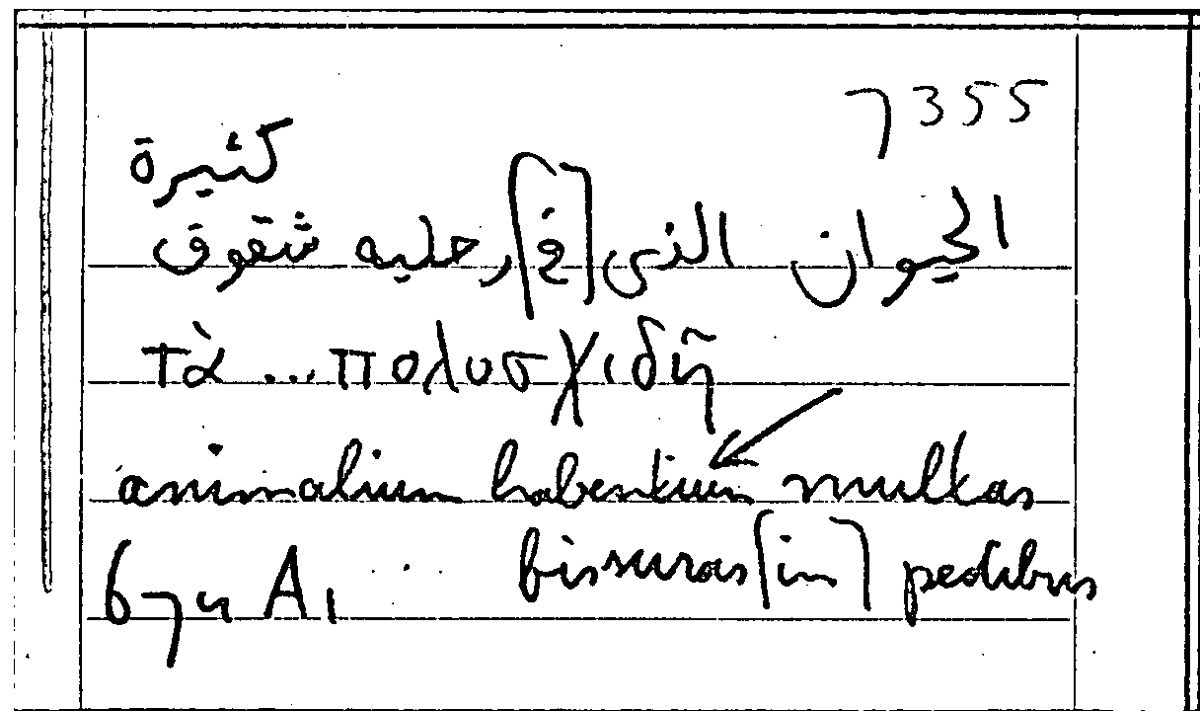 7355
الحيوان الذى [فى] رجليه شقوق
كثيرة
τὰ ... πολυσχιδῆ
animalium habentium multas
fissuras [in] pedibus
674 A1